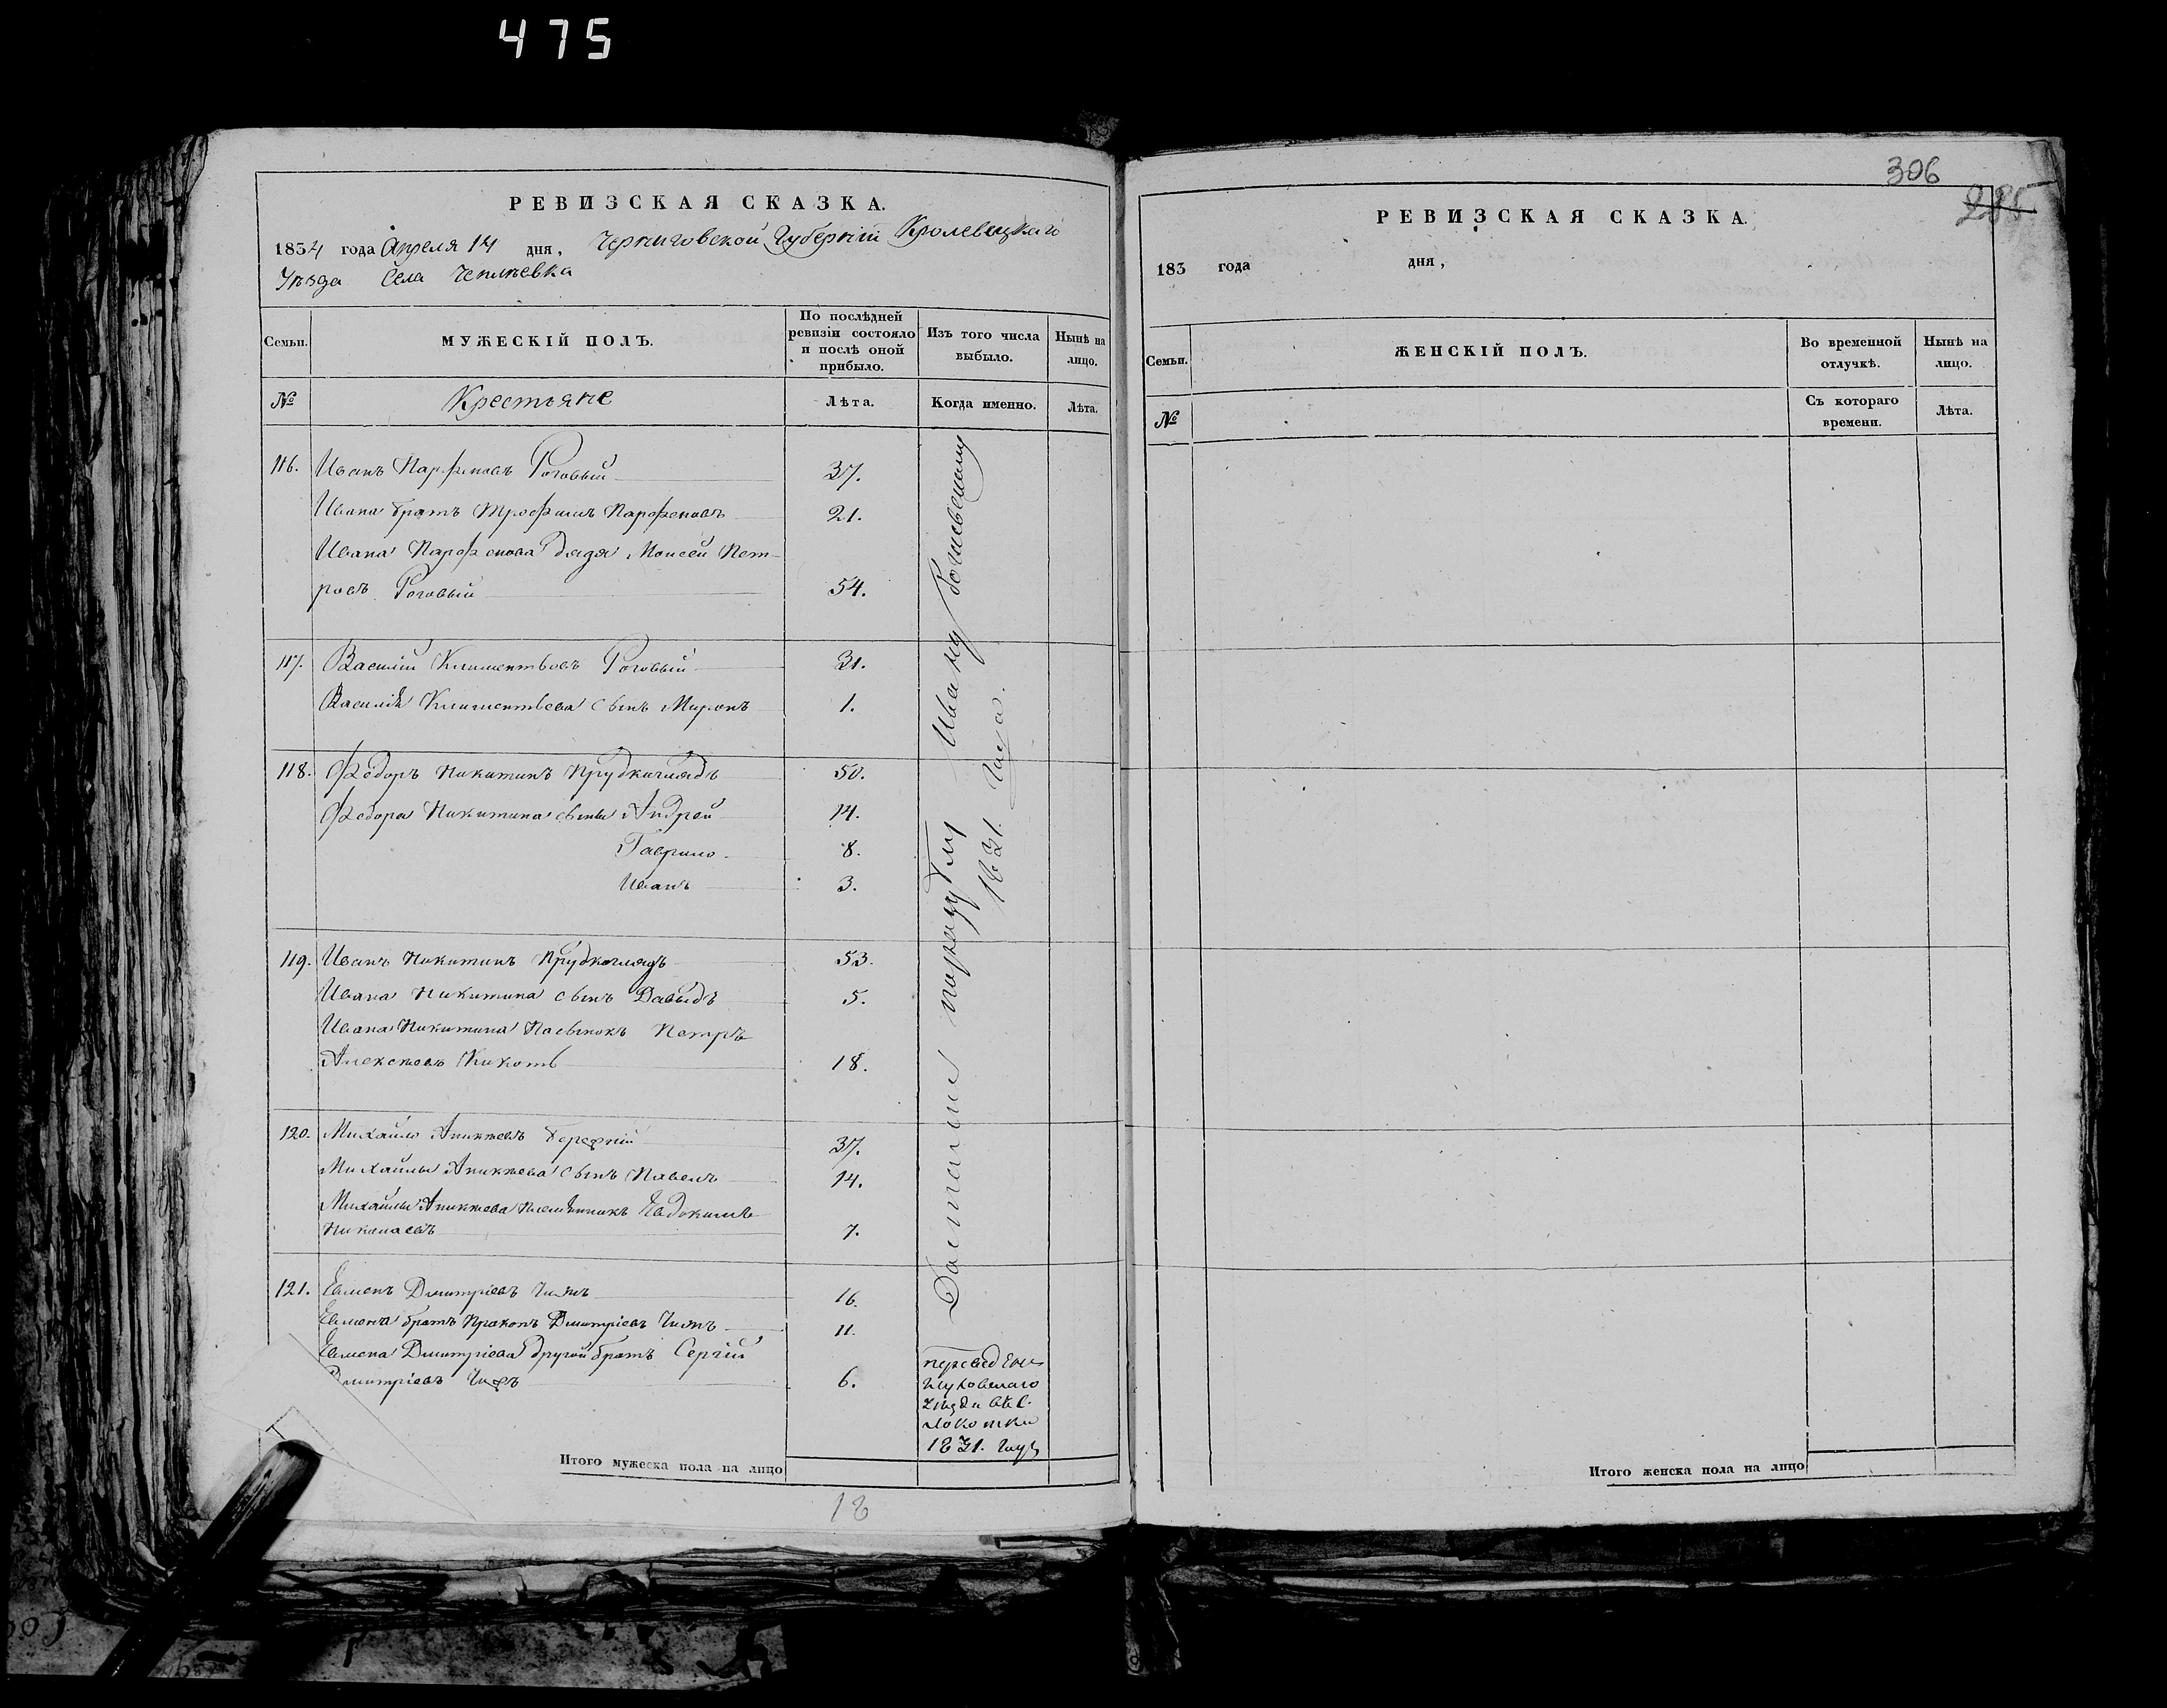 475
РЕВИЗСКАЯ СКАЗКА.
1834 года Апреля 14 дня, Черниговской Губерніи Кролевецкаго
Уѣзда Села Чеплѣевка
Семьи.
МУЖЕСКІЙ ПОЛЪ.
По послѣдней
ревизіи состояло
и послѣ оной
прибыло.
Изъ того числа
выбыло.
Нынѣ на
лицо.
№
Крестьяне
Лѣта.
Когда именно.
Лѣта.
116. Иванъ Парфеновъ Роговый 37.
Ивана братъ Трофимъ Парфеновъ 21.
Ивана Парфенова дядя Моисей Пет-
ровъ Роговый 54.
117. Василій Климентьевъ Роговый 31.
Василія Климентьева сынъ Миронъ 1.
118. Федоръ Никитинъ Прудкоглядъ 50.
Федора Никитина сыны Андрей 14.
Гаврило 8.
Иванъ 3.
119. Иванъ Никитинъ Прудкоглядъ 53.
Ивана Никитина сынъ Давыдъ 5.
Ивана Никитина Пасынокъ Петръ
Алексѣевъ Кикоть 18.
120. Михайло Аникѣевъ 37.
Михайлы Аникѣева сынъ Павелъ 14.
Михайлы Аникѣева племянникъ Евдокимъ
Николаевъ 7.
121. Евменъ Дмитріевъ 16.
Евмена братъ Прокопъ Дмитріевъ 11.
Евмена Дмитріева другой братъ Сергій
Дмитріевъ 6.
Достались Ивану
1831. Года.
переведены
Глуховскаго
уѣзда въ с.
Локотки
1831. году
Итого мужеска пола на лицо
18
306
285
РЕВИЗСКАЯ СКАЗКА.
183 года дня,
Семьи.
ЖЕНСКІЙ ПОЛЪ.
Во временной
отлучкѣ.
Нынѣ на
лицо.
№
Съ котораго
времени.
Лѣта.
Итого женска пола на лицо